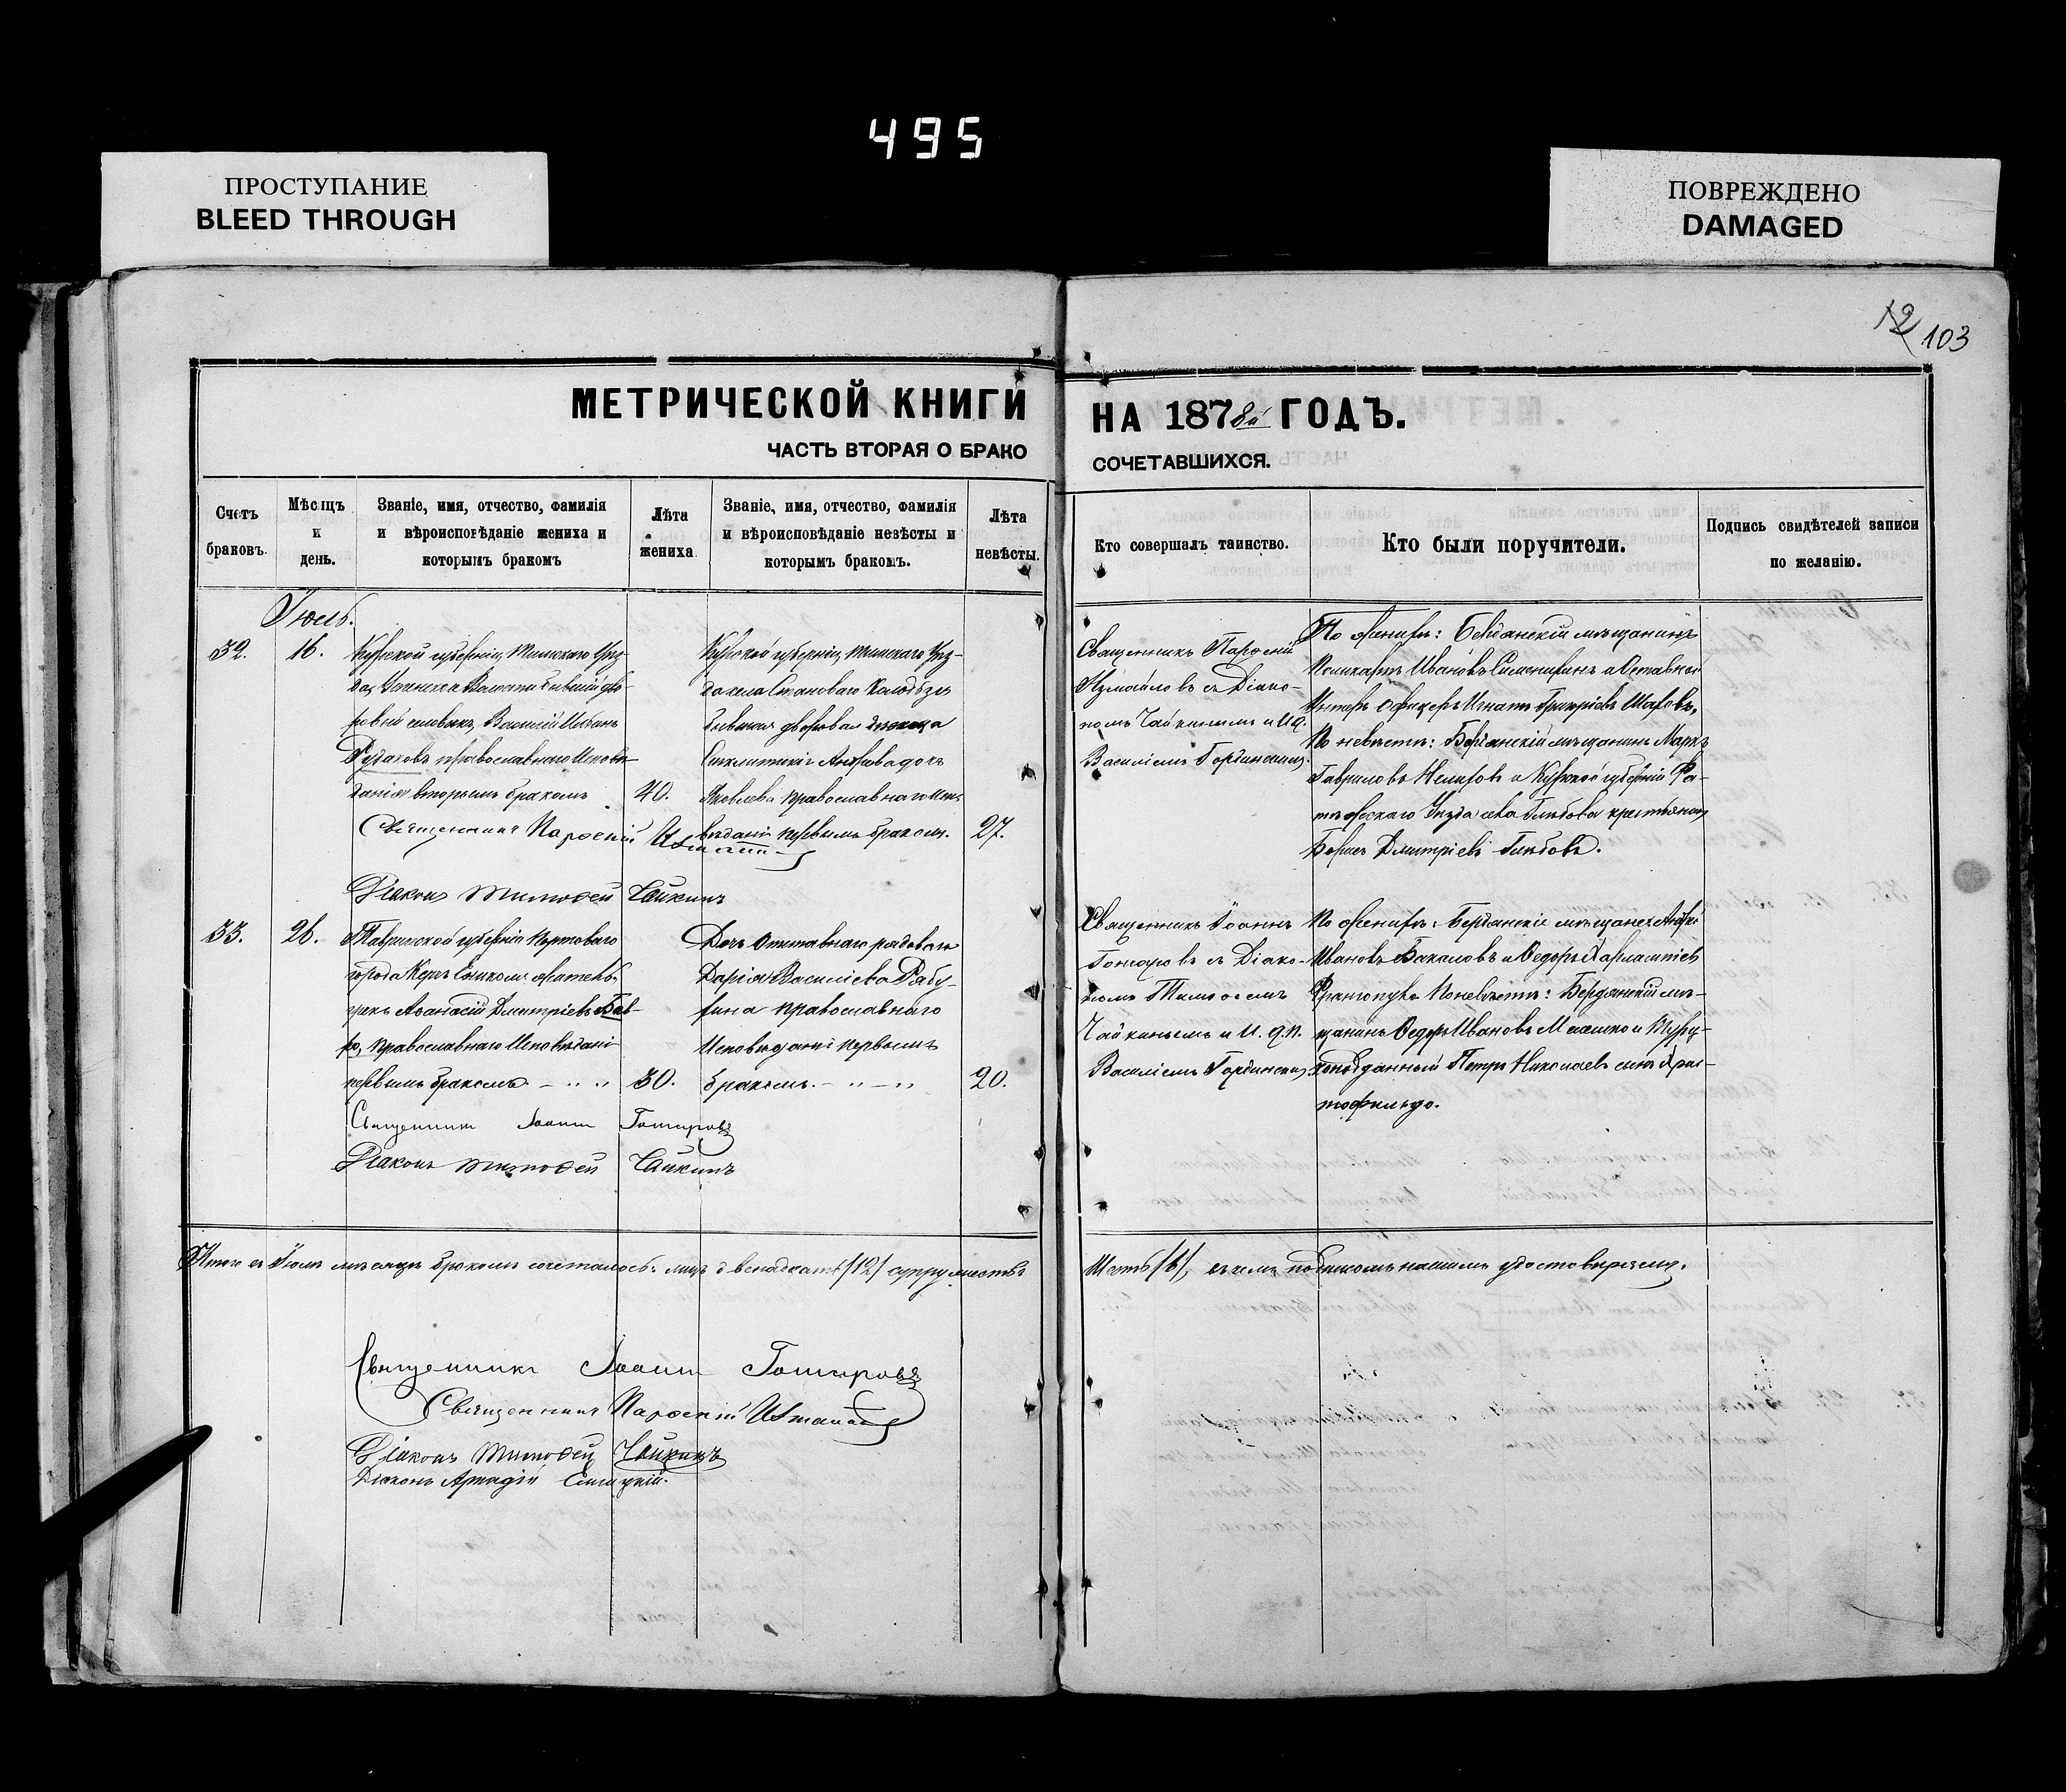 495
ПРОСТУПАНИЕ
BLEED THROUGH
ПОВРЕЖДЕНО
DAMAGED
12 103
МЕТРИЧЕСКОЙ КНИГИ
ЧАСТЬ ВТОРАЯ О БРАКО
НА 1878й ГОДЪ.
СОЧЕТАВШИХСЯ.
Счетъ
браковъ.
Мѣсяцъ
и
день.
Званіе, имя, отчество, фамилія
и вѣроисповѣданіе жениха и
которымъ бракомъ
Лѣта
жениха
Званіе, имя, отчество, фамилія
и вѣроисповѣданіе невѣсты и
которымъ бракомъ.
Лѣта
невѣсты.
Кто совершалъ таинство.
Кто были поручители.
Подпись свидѣтелей записи
по желанію.
Іюль.
32.
16.
Курской губерніи, Тимскаго Уѣз-
да, Волости бывшій дво-
ровый Василій
Рудаковъ православнаго Исповѣ-
данія вторымъ бракомъ
40.
Курской губерніи, Тимскаго Уѣз-
да села Становаго Колодезя
бывшая дворовая
Яковлева православнаго Испо
вѣданія первымъ бракомъ.
27.
Священникъ Пароеній
Измайловъ съ Діако-
номъ Чайкинымъ и И. д.
Василіемъ Гординскимъ
По женихѣ: Бердянскій мѣщанинъ
Ивановъ и Отставной
Унтеръ Офицеръ Игнатъ
По невѣстѣ: Бердянскій мѣщанинъ Маркъ
Гавриловъ и Курской губерніи Фа-
тежскаго Уѣзда села Глѣбова крестьянинъ
Борисъ Дмитріевъ Глѣбовъ.
Священникъ Пароеній
Діаконъ Тимофей Чайкинъ
33.
26.
Таврической губерніи Портоваго
города Керчь Ениколя житель
грекъ Афанасій Дмитріевъ
православнаго Исповѣданія
первымъ бракомъ.
30.
Дочь Отставнаго рядоваго
Дарія Василіева Рябу-
хина православнаго
Исповѣданія первымъ
бракомъ.
20.
Священникъ Іоаннъ
Гончаровъ съ Діако-
номъ Тимофеемъ
Чайкинымъ и И. д. п.
Василіемъ Гординскимъ
По женихѣ: Бердянскіе мѣщане
Ивановъ Бакаловъ и Федоръ Харлампіевъ
По невѣстѣ: Бердянскій мѣ-
щанинъ Федоръ Ивановъ и Турец-
коподданный Петръ Николаевъ сынъ Хрис-
тофильдо.
Священникъ Іоаннъ Гончаровъ
Діаконъ Тимофей Чайкинъ
Итого въ Іюлѣ мѣсяцѣ бракомъ сочеталось: лицъ двенадцать /12/ супружествъ
Шесть /6/, въ чемъ подписомъ нашимъ удостовѣряемъ.
Священникъ Іоаннъ Гончаровъ
Священникъ Пароеній Измайловъ
Діаконъ Тимофей Чайкинъ
Діаконъ